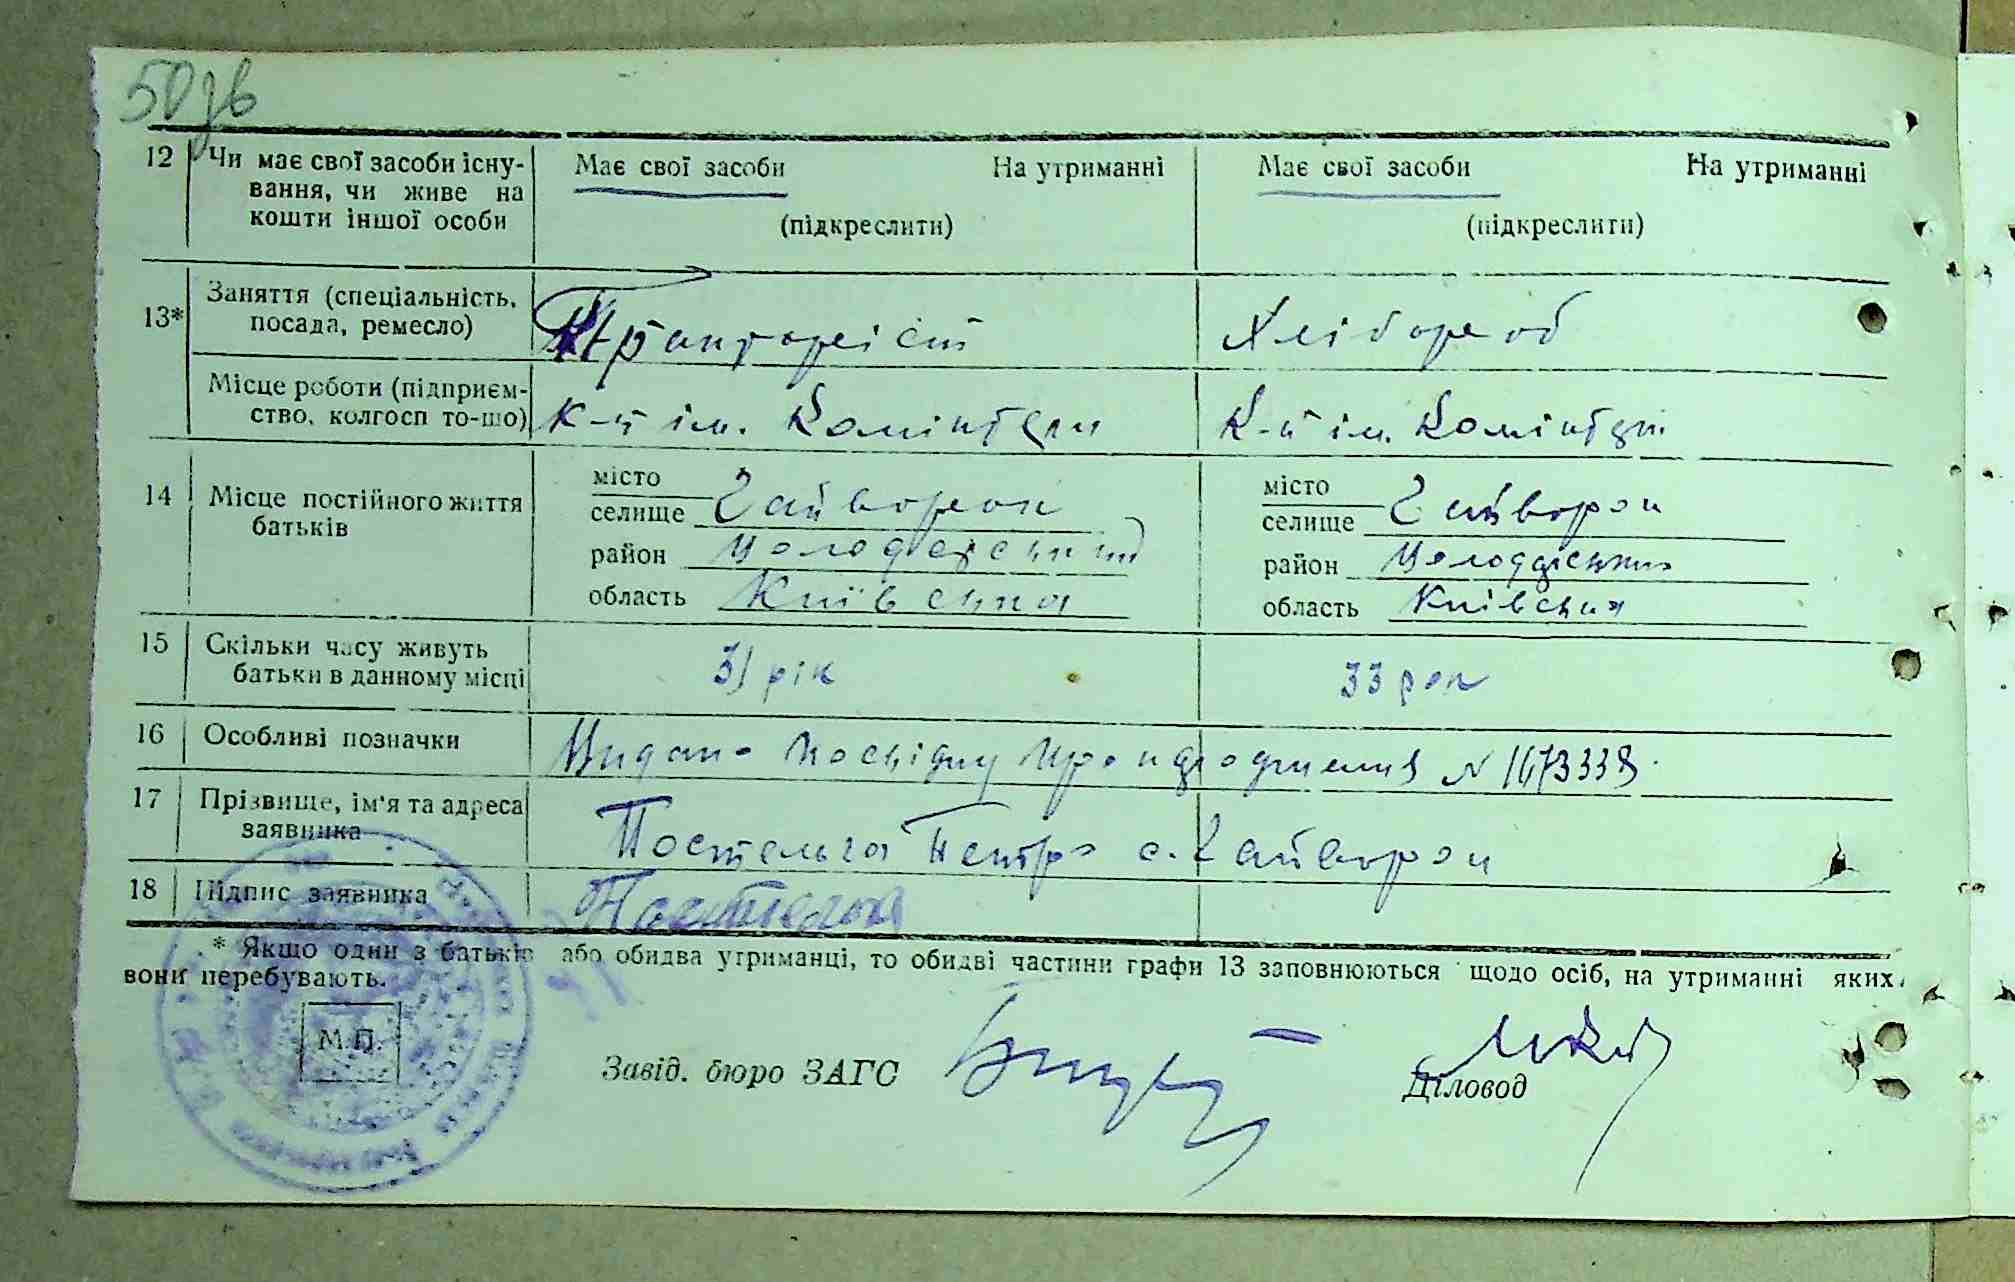 50зв
12 Чи має свої засоби існу-
вання, чи живе на
кошти іншої особи
Має свої засоби На утриманні
(підкреслити)
Має свої засоби На утриманні
(підкреслити)
13* Заняття (спеціальність,
посада, ремесло)
Тракторист
Хлібороб
Місце роботи (підприєм-
ство, колгосп то-що)
К-п ім. Комінтерн
К-п ім. Комінтерн
14 Місце постійного життя
батьків
місто
селище Гайворон
район Володарський
область Київська
місто
селище Гайворон
район Володарський
область Київська
15 Скільки часу живуть
батьки в данному місці
31 рік
33 рок
16 Особливі позначки
Видано посвідку про народження № 1473338.
17 Прізвище, ім'я та адреса
заявника
Постельга Петро с. Гайворон
18 Підпис заявника
Постельга
* Якщо один з батьків або обидва утриманці, то обидві частини графи 13 заповнюються щодо осіб, на утриманні яких
вони перебувають.
М.П.
Завід. бюро ЗАГС
Діловод